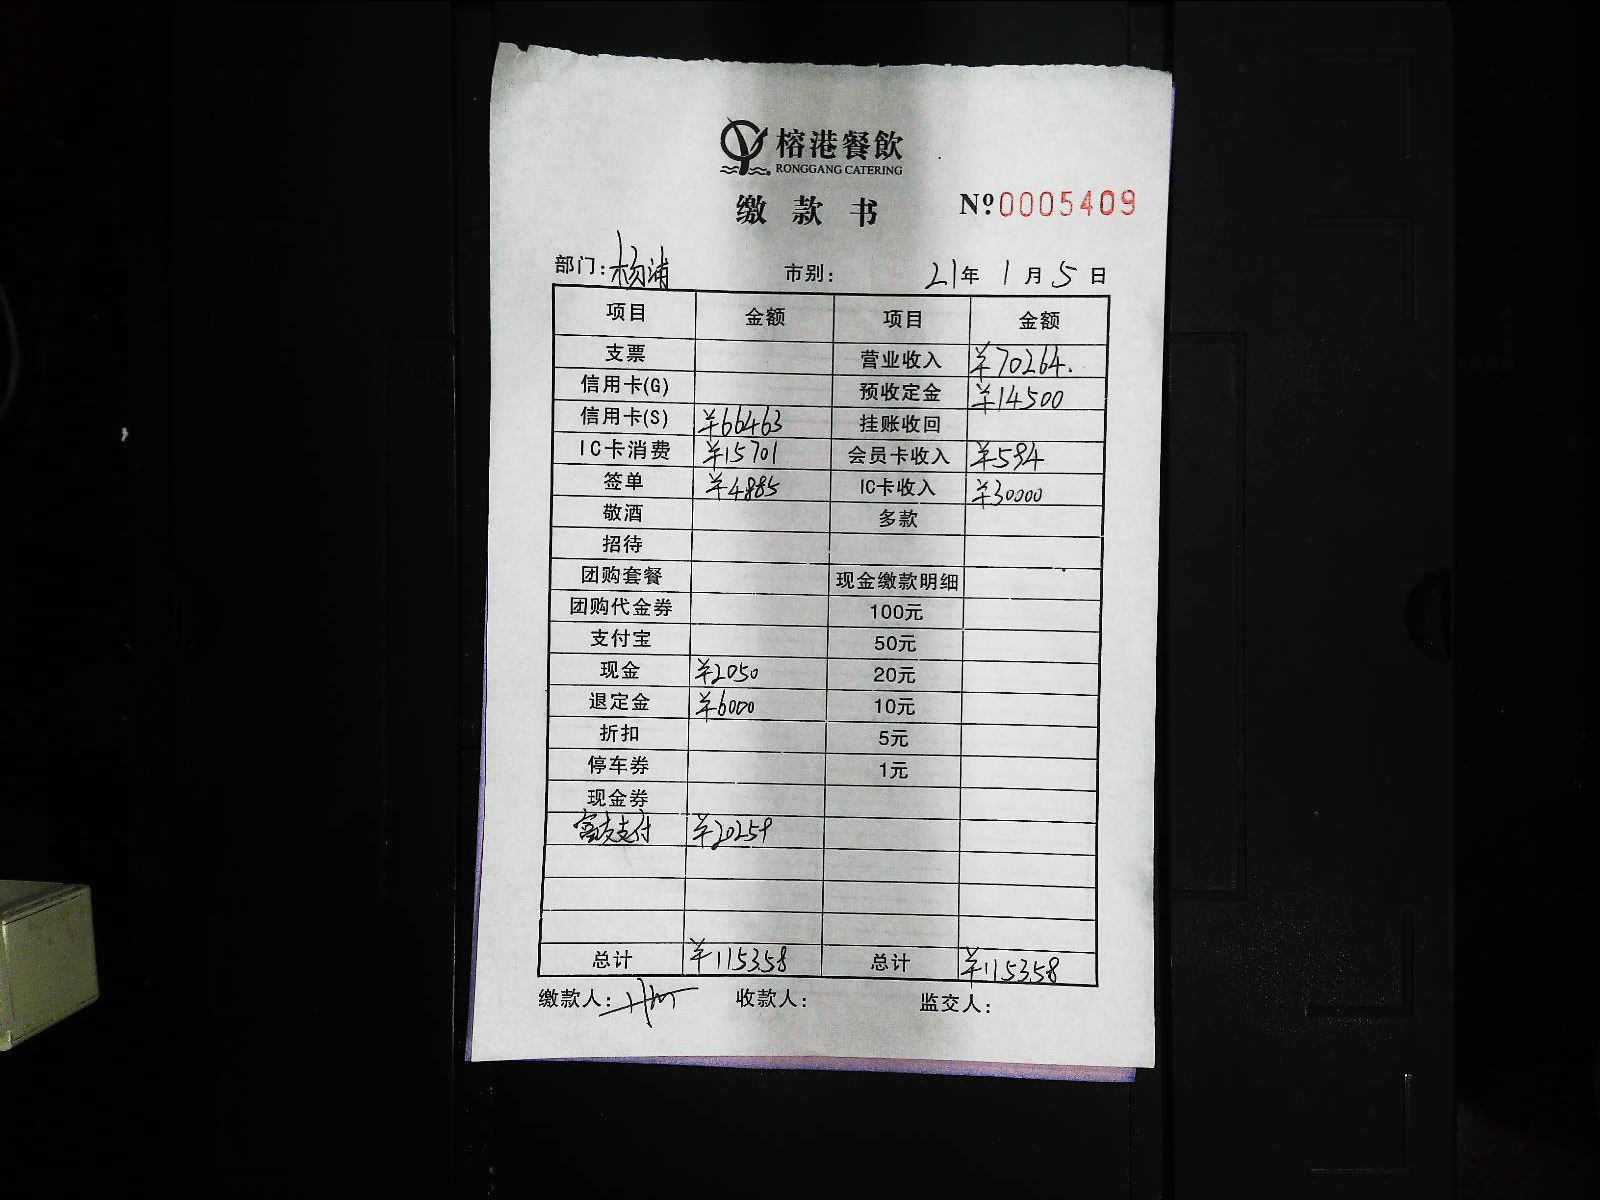 榕港餐飲
RONGGANG CATERING
缴款书 Nº0005409
部门：杨浦 市别： 21年 1月 5日
项目 金额 项目 金额
支票 营业收入 ¥70264.
信用卡(G) 预收定金 ¥14500
信用卡(S) ¥66463 挂账收回
IC卡消费 ¥15701 会员卡收入 ¥594
签单 ¥4885 IC卡收入 ¥30000
敬酒 多款
招待
团购套餐 现金缴款明细
团购代金券 100元
支付宝 50元
现金 ¥2050 20元
退定金 ¥6000 10元
折扣 5元
停车券 1元
现金券
富友支付 ¥20259
总计 ¥115358 总计 ¥115358
缴款人： 收款人： 监交人：